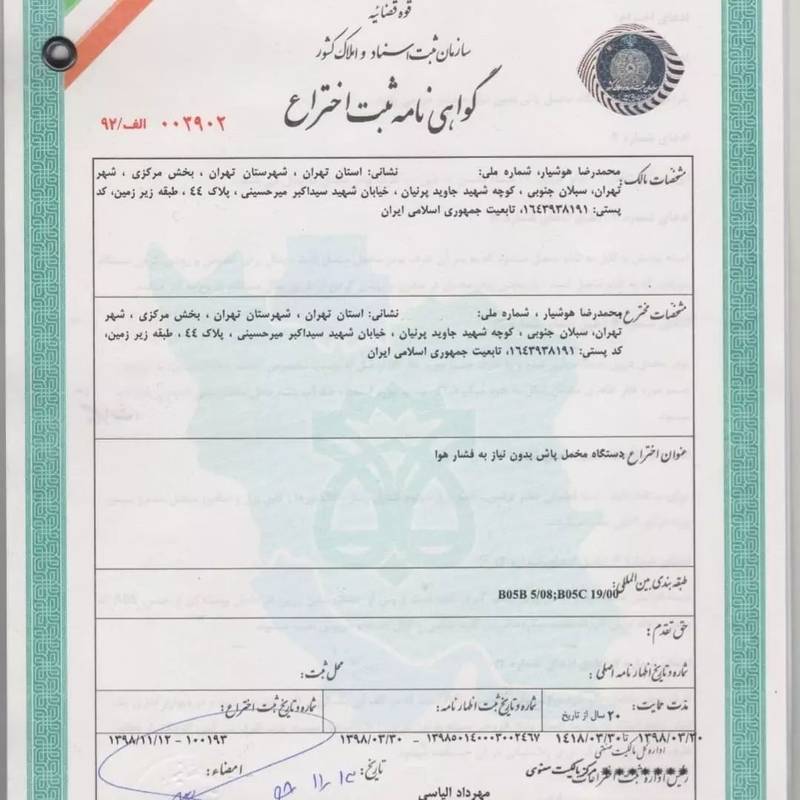 قوه قضائیه
سازمان ثبت اسناد و املاک کشور
گواهی نامه ثبت اختراع
۰۰۳۹۰۲ الف/۹۲
مشخصات مالک: محمدرضا هوشیار، شماره ملی: نشانی: استان تهران ، شهرستان تهران ، بخش مرکزی ، شهر
تهران، سبلان جنوبی ، کوچه شهید جاوید پرنیان ، خیابان شهید سیداکبر میرحسینی ، پلاک ٤٤ ، طبقه زیر زمین، کد
پستی: ١٦٤٣٩٣٨١٩١، تابعیت جمهوری اسلامی ایران
مشخصات مخترع: محمدرضا هوشیار ، شماره ملی: نشانی: استان تهران ، شهرستان تهران ، بخش مرکزی ، شهر
تهران، سبلان جنوبی ، کوچه شهید جاوید پرنیان ، خیابان شهید سیداکبر میرحسینی ، پلاک ٤٤ ، طبقه زیر زمین،
کد پستی: ١٦٤٣٩٣٨١٩١، تابعیت جمهوری اسلامی ایران
عنوان اختراع: دستگاه مخمل پاش بدون نیاز به فشار هوا
طبقه بندی بین المللی:
B05B 5/08;B05C 19/00
حق تقدم:
شماره و تاریخ اظهارنامه اصلی: محل ثبت:
مدت حمایت: ۲۰ سال از تاریخ شماره و تاریخ ثبت اظهارنامه: شماره و تاریخ ثبت اختراع:
۱۳۹۸/۰۳/۳۰ تا ۱۴۱۸/۰۳/۳۰ ۱۳۹۸۵۰۱۴۰۰۰۳۰۰۲۴۶۷ - ۱۳۹۸/۰۳/۳۰ ۱۰۰۱۹۳ - ۱۳۹۸/۱۱/۱۲
اداره کل مالکیت صنعتی
رئیس اداره ثبت اختراعات مرکز مالکیت معنوی تاریخ: امضاء:
مهرداد الیاسی